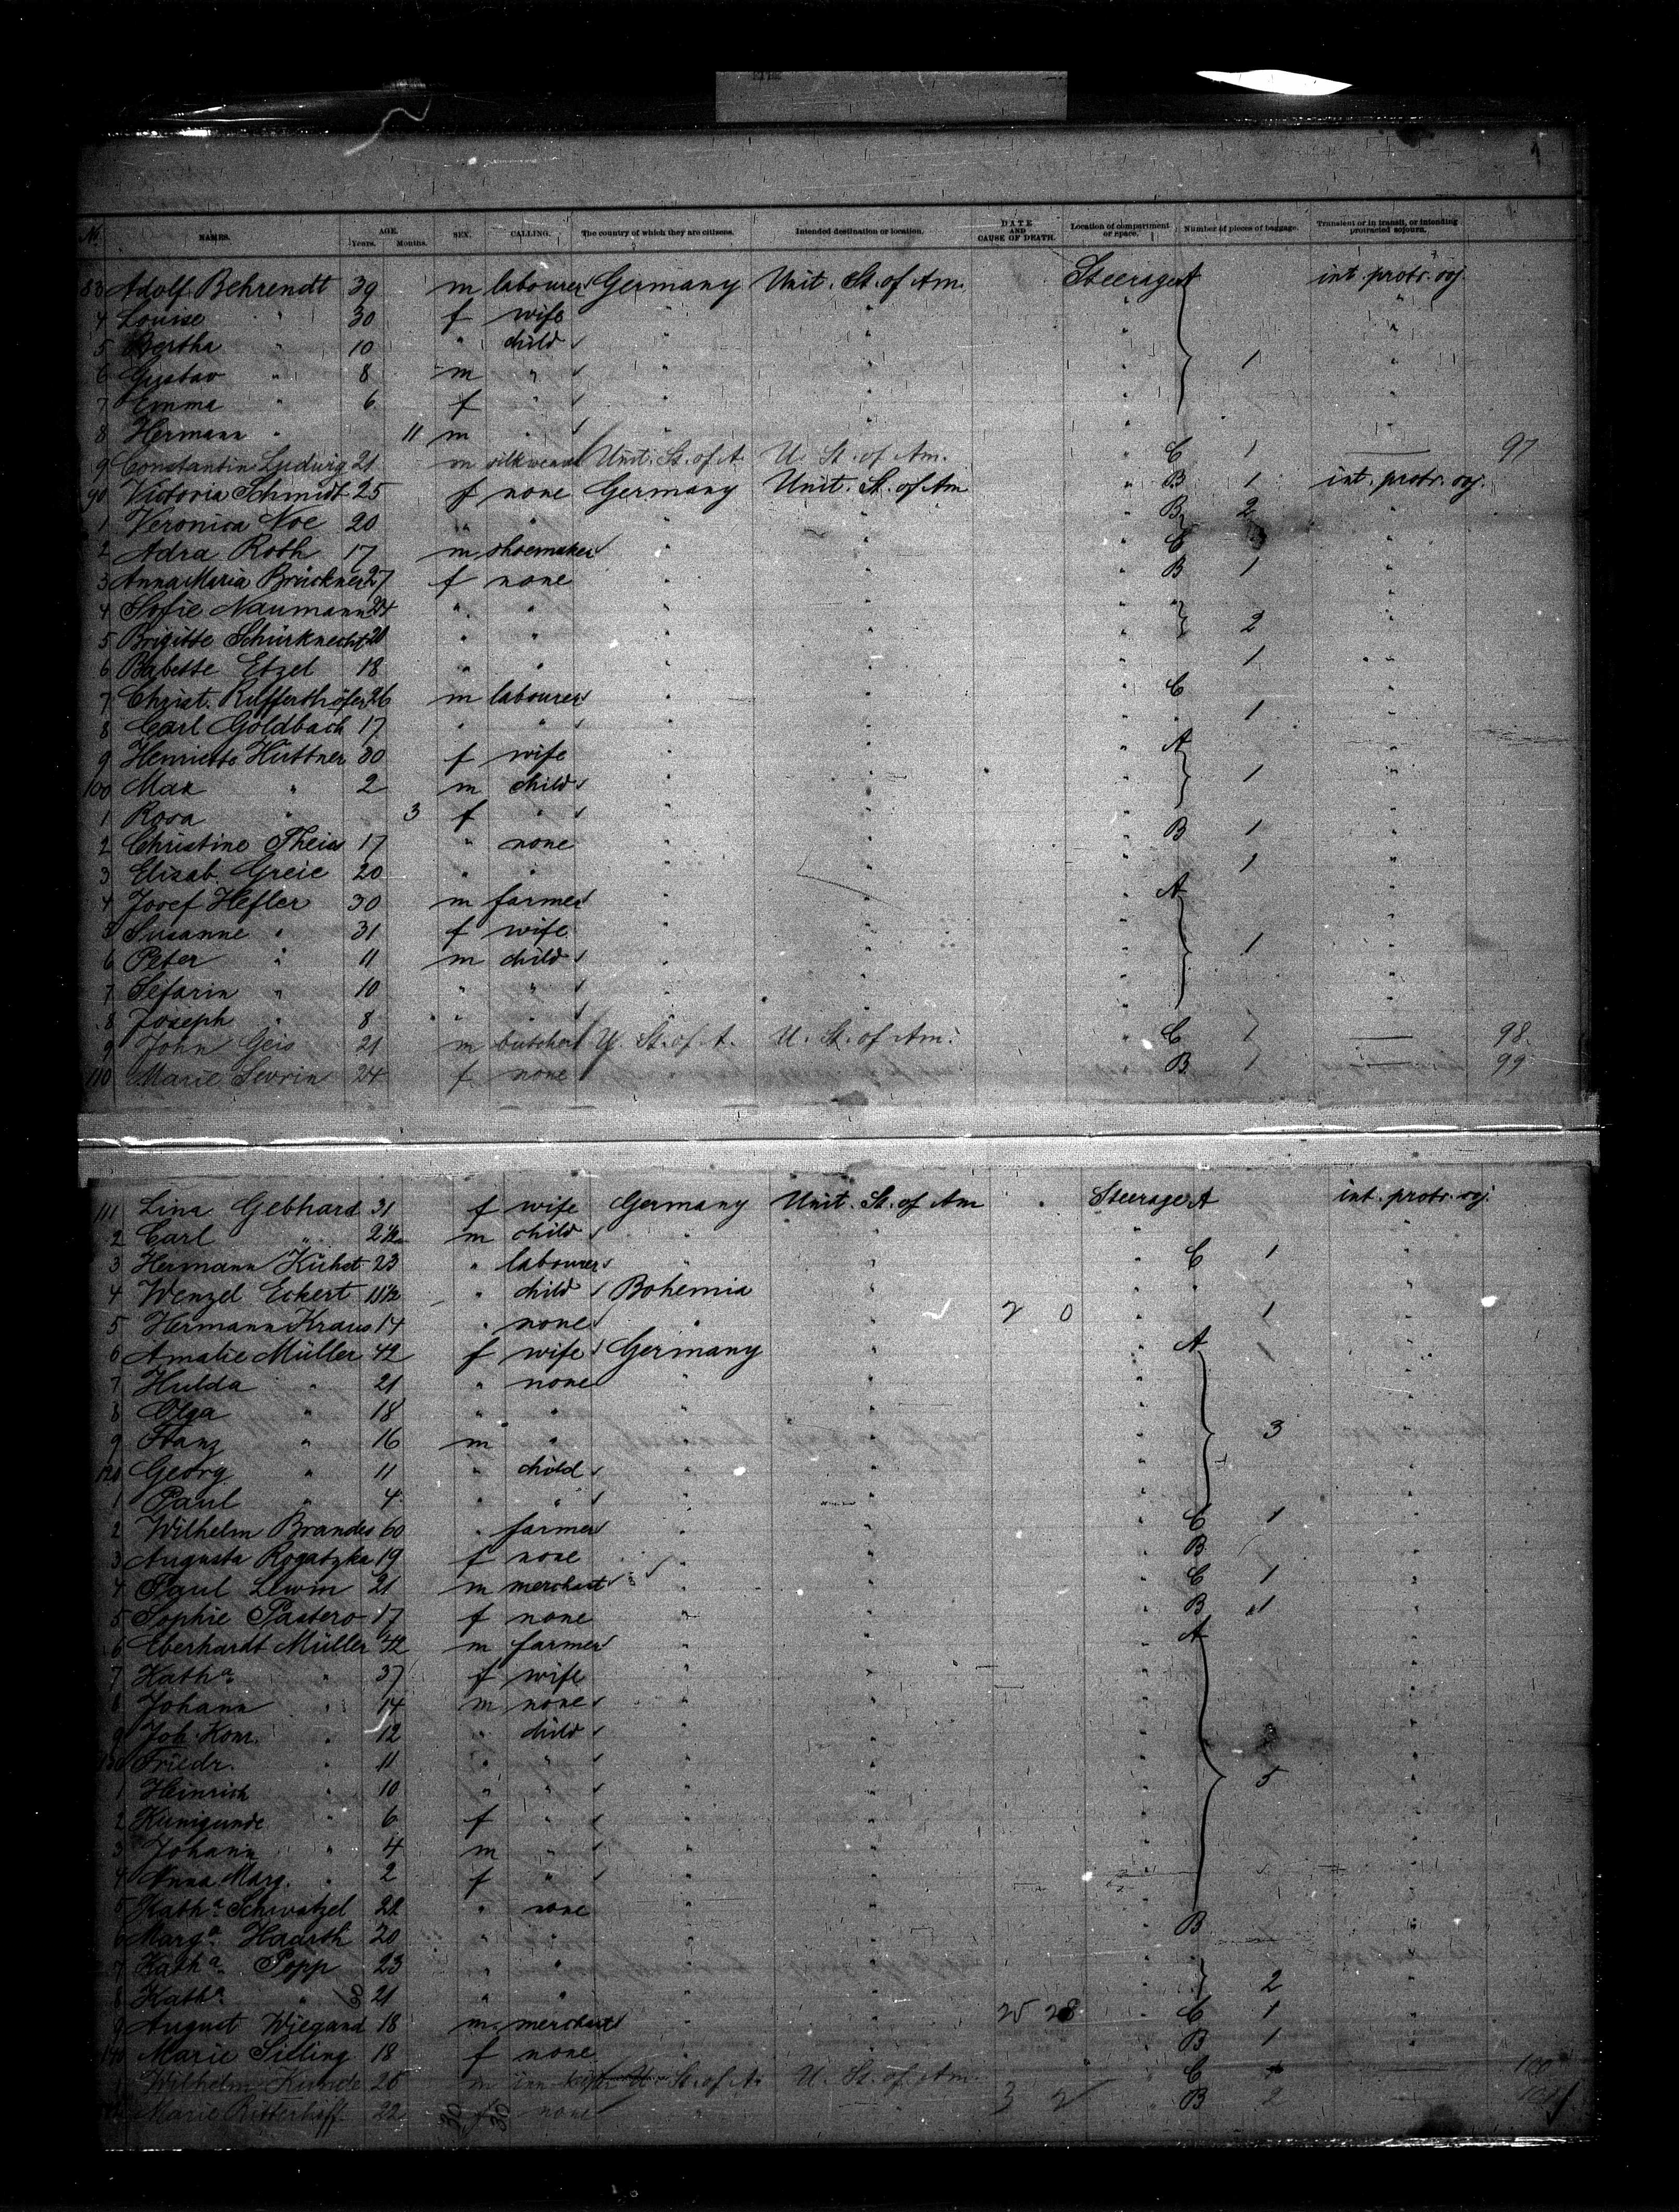 No. NAMES. AGE. Years. Months. SEX. CALLING. The country of which they are citizens. Intended destination or location. DATE AND CAUSE OF DEATH. Location of compartment or space. Number of pieces of baggage. Transient or in transit, or intending protracted sojourn.
83 Adolf Behrendt 39 m labourer Germany Unit. St. of Am. Steerage A int. protr. soj.
4 Louise " 30 f wife " " " "
5 Bertha " 10 " child " " " "
6 Gustav " 8 m " " " " 1 "
7 Emma " 6 f " " " " "
8 Hermann " 11 m " " " " "
9 Constantin Ludwig 21 m Unit. St. of A. U. St. of Am. " C 1 — 97
90 Victoria Schmidt 25 f none Germany Unit. St. of Am " B 1 int. protr. soj.
1 Veronica Noe 20 " " " " " B 2 "
2 Adra Roth 17 m shoemaker " " " C "
3 Anna Maria Brückner 27 f none " " " B 1 "
4 Sofie Naumann 24 " " " " " " "
5 Brigitte Schürknecht 20 " " " " " 2 "
6 Babette Etzel 18 " " " " " 1 "
7 Christ. 26 m labourer " " " C "
8 Carl Goldbach 17 " " " " " " 1 "
9 Henriette Hüttner 30 f wife " " " A "
100 Max " 2 m child " " " 1 "
1 Rosa " 3 f " " " " "
2 Christine Theis 17 " none " " " B 1 "
3 Elisab. Greie 20 " " " " " 1 "
4 Josef Hefler 30 m farmer " " " A "
5 Susanne " 31 f wife " " " "
6 Peter " 11 m child " " " 1 "
7 Sefarin " 10 " " " " " "
8 Joseph " 8 " " " " " "
9 John Geis 21 m butcher U. St. of A. U. St. of Am. " C 1 — 98
110 Marie Sevrin 24 f none B 1 — 99
111 Lina Gebhard 31 f wife Germany Unit. St. of Am Steerage A int. protr. soj.
2 Carl " 2 1/2 m child " " " "
3 Hermann 23 " labourer " " " C 1 "
4 Wenzel Eckert 11 1/2 " child Bohemia " " " "
5 Hermann Kraus 14 " none " " 2 0 " 1 "
6 Amalie Müller 42 f wife Germany " " A 1 "
7 Hulda " 21 " none " " " "
8 Olga " 18 " " " " " "
9 Franz " 16 m " " " " 3 "
120 Georg " 11 " child " " " "
1 Paul " 4 " " " " " "
2 Wilhelm Brandes 60 " farmer " " " C 1 "
3 Augusta Rogatzka 19 f none " " " B "
4 Paul Lewin 21 m merchant " " " C 1 "
5 Sophie Pastero 17 f none " " " B 1 "
6 Eberhardt Müller 42 m farmer " " " A "
7 Katha. " 37 f wife " " " "
8 Johann " 14 m none " " " "
9 Joh. Konr. " 12 " child " " " "
130 Friedr. " 11 " " " " " "
1 Heinrich " 10 " " " " " 5 "
2 Kunigunde " 6 f " " " " "
3 Johann " 4 m " " " " "
4 Anna Marg. " 2 f " " " " "
5 Katha. Schwatzel 22 " none " " " "
6 Marga. Haarth 20 " " " " " B "
7 Katha. Popp 23 " " " " " " "
8 Katha. " 21 " " " " " 2 "
9 August Wiegand 18 m merchant " " " C 1 "
140 Marie Silling 18 f none " " " B 1 "
1 Wilhelm Kunde 25 m inn-keeper U. St. of A. U. St. of Am. " C — 100
Marie Ritterhoff 22 f none " " 3 2 " B 2 101